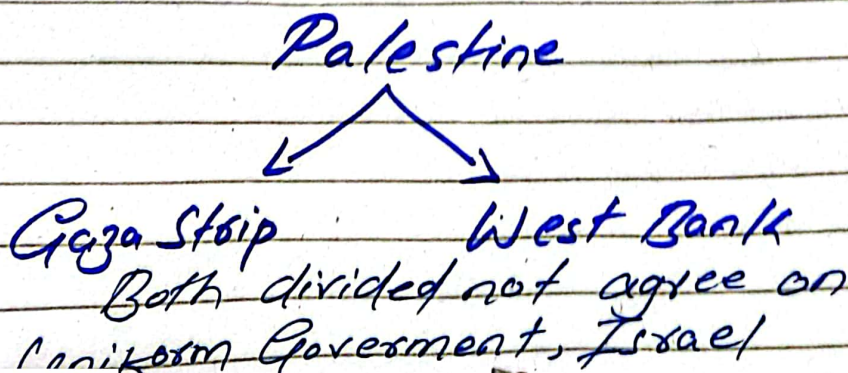 Palestine
Gaza Strip West Bank
Both divided not agree on
Uniform Goverment, Israel